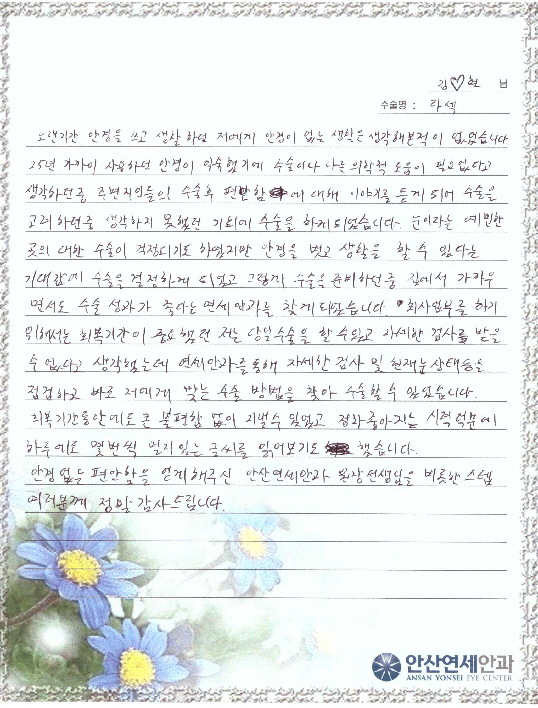 김♡현 님
수술명 : 라섹
오랜기간 안경을 쓰고 생활 하던 저에게 안경이 없는 생활은 생각해본적이 없었습니다
25년 가까이 사용하던 안경이 익숙했기에 수술이나 다른 의학적 도움이 필요없다고
생각하던중 주변지인들의 수술후 편안함에 대해 이야기를 듣게 되어 수술을
고려하던중 생각하지 못했던 기회에 수술을 하게 되었습니다. 눈이라는 예민한
곳의 대한 수술이 걱정되기도 하였지만 안경을 벗고 생활을 할 수 있다는
기대감에 수술을 결정하게 되었고 그렇게 수술을 준비하던중 집에서 가까우
면서도 수술 성과가 좋다는 연세안과를 찾게 되었습니다. 회사업무를 하기
위해서는 회복기간이 중요했던 저는 당일수술을 할 수있고 자세한 검사를 받을
수 있다고 생각했는데 연세안과를 통해 자세한 검사 및 현재눈상태등을
점검하고 바로 저에게 맞는 수술 방법을 찾아 수술할 수 있었습니다.
회복기간동안에도 큰 불편함 없이 지낼수 있었고 점차좋아지는 시력덕분에
하루에도 몇번씩 멀리있는 글씨를 읽어보기도 했습니다.
안경없는 편안함을 얻게해주신 안산연세안과 원장선생님을 비롯한 스텝
여러분께 정말 감사드립니다.
안산연세안과
ANSAN YONSEI EYE CENTER